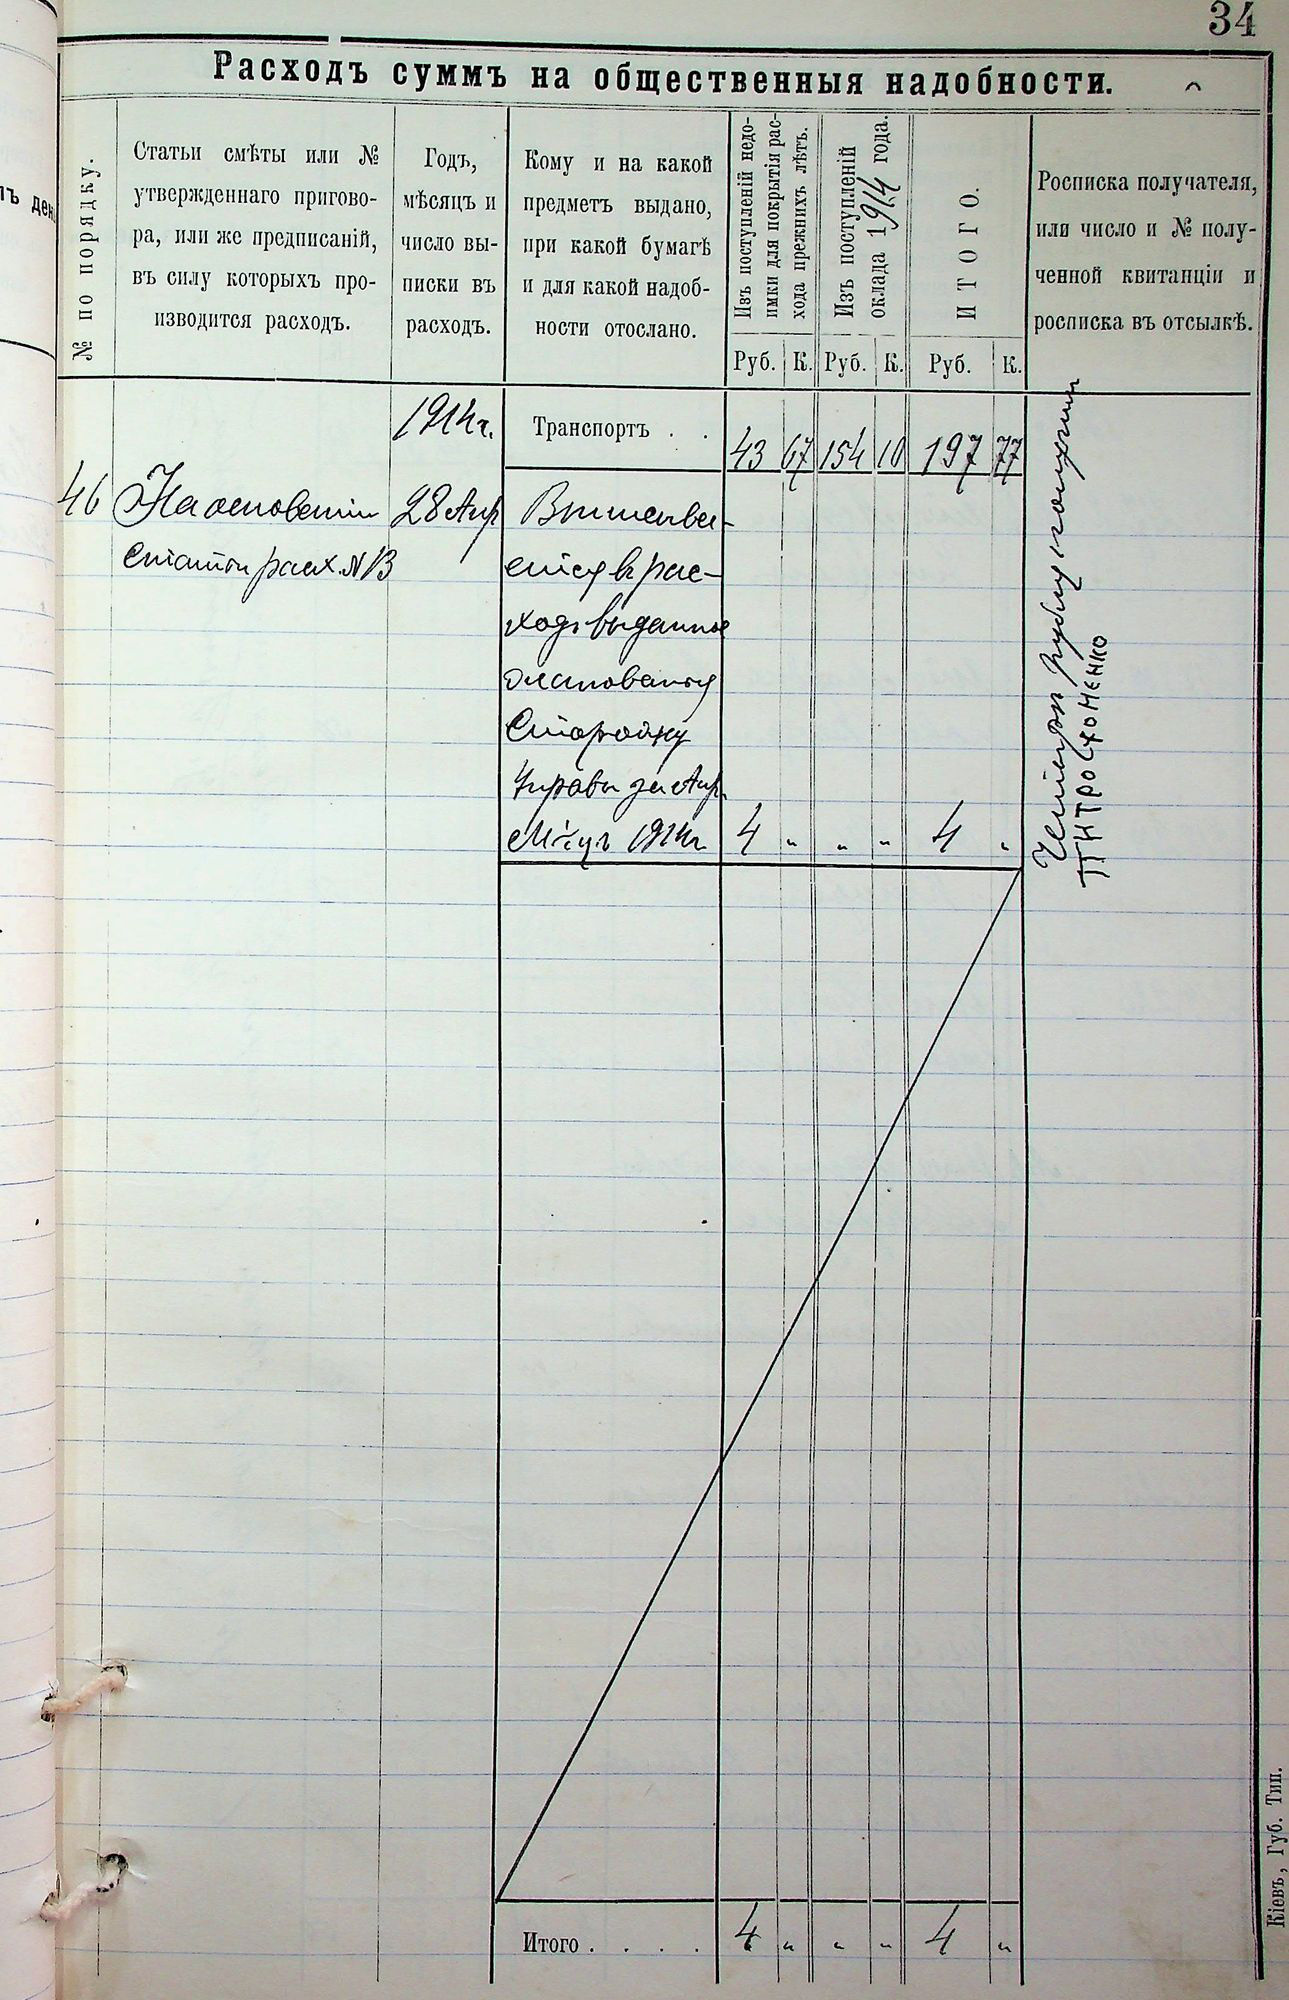 34
Расходъ суммъ на общественныя надобности.
№ по порядку.
Статьи смѣты или №
утвержденнаго пригово-
ра, или же предписаній,
въ силу которыхъ про-
изводится расходъ.
Годъ,
мѣсяцъ и
число вы-
писки въ
расходъ.
Кому и на какой
предметъ выдано,
при какой бумагѣ
и для какой надоб-
ности отослано.
Изъ поступленій недо-
имки для покрытія рас-
хода прежнихъ лѣтъ.
Изъ поступленій
оклада 1914 года.
ИТОГО.
Росписка получателя,
или число и № полу-
ченной квитанціи и
росписка въ отсылкѣ.
Руб. К. Руб. К. Руб. К.
1914 г. Транспортъ . . 43 67 154 10 197 77
46 На основаніи 28 Апр
статьи расх. №
расходъ выданное
жалованья
Сторожу
Управы за Апр.
М-цъ 1914 г. 4 " " " 4 "
Четыре рубля получилъ
Итого . . . . 4 " " " 4 "
Кіевъ, Губ. Тип.